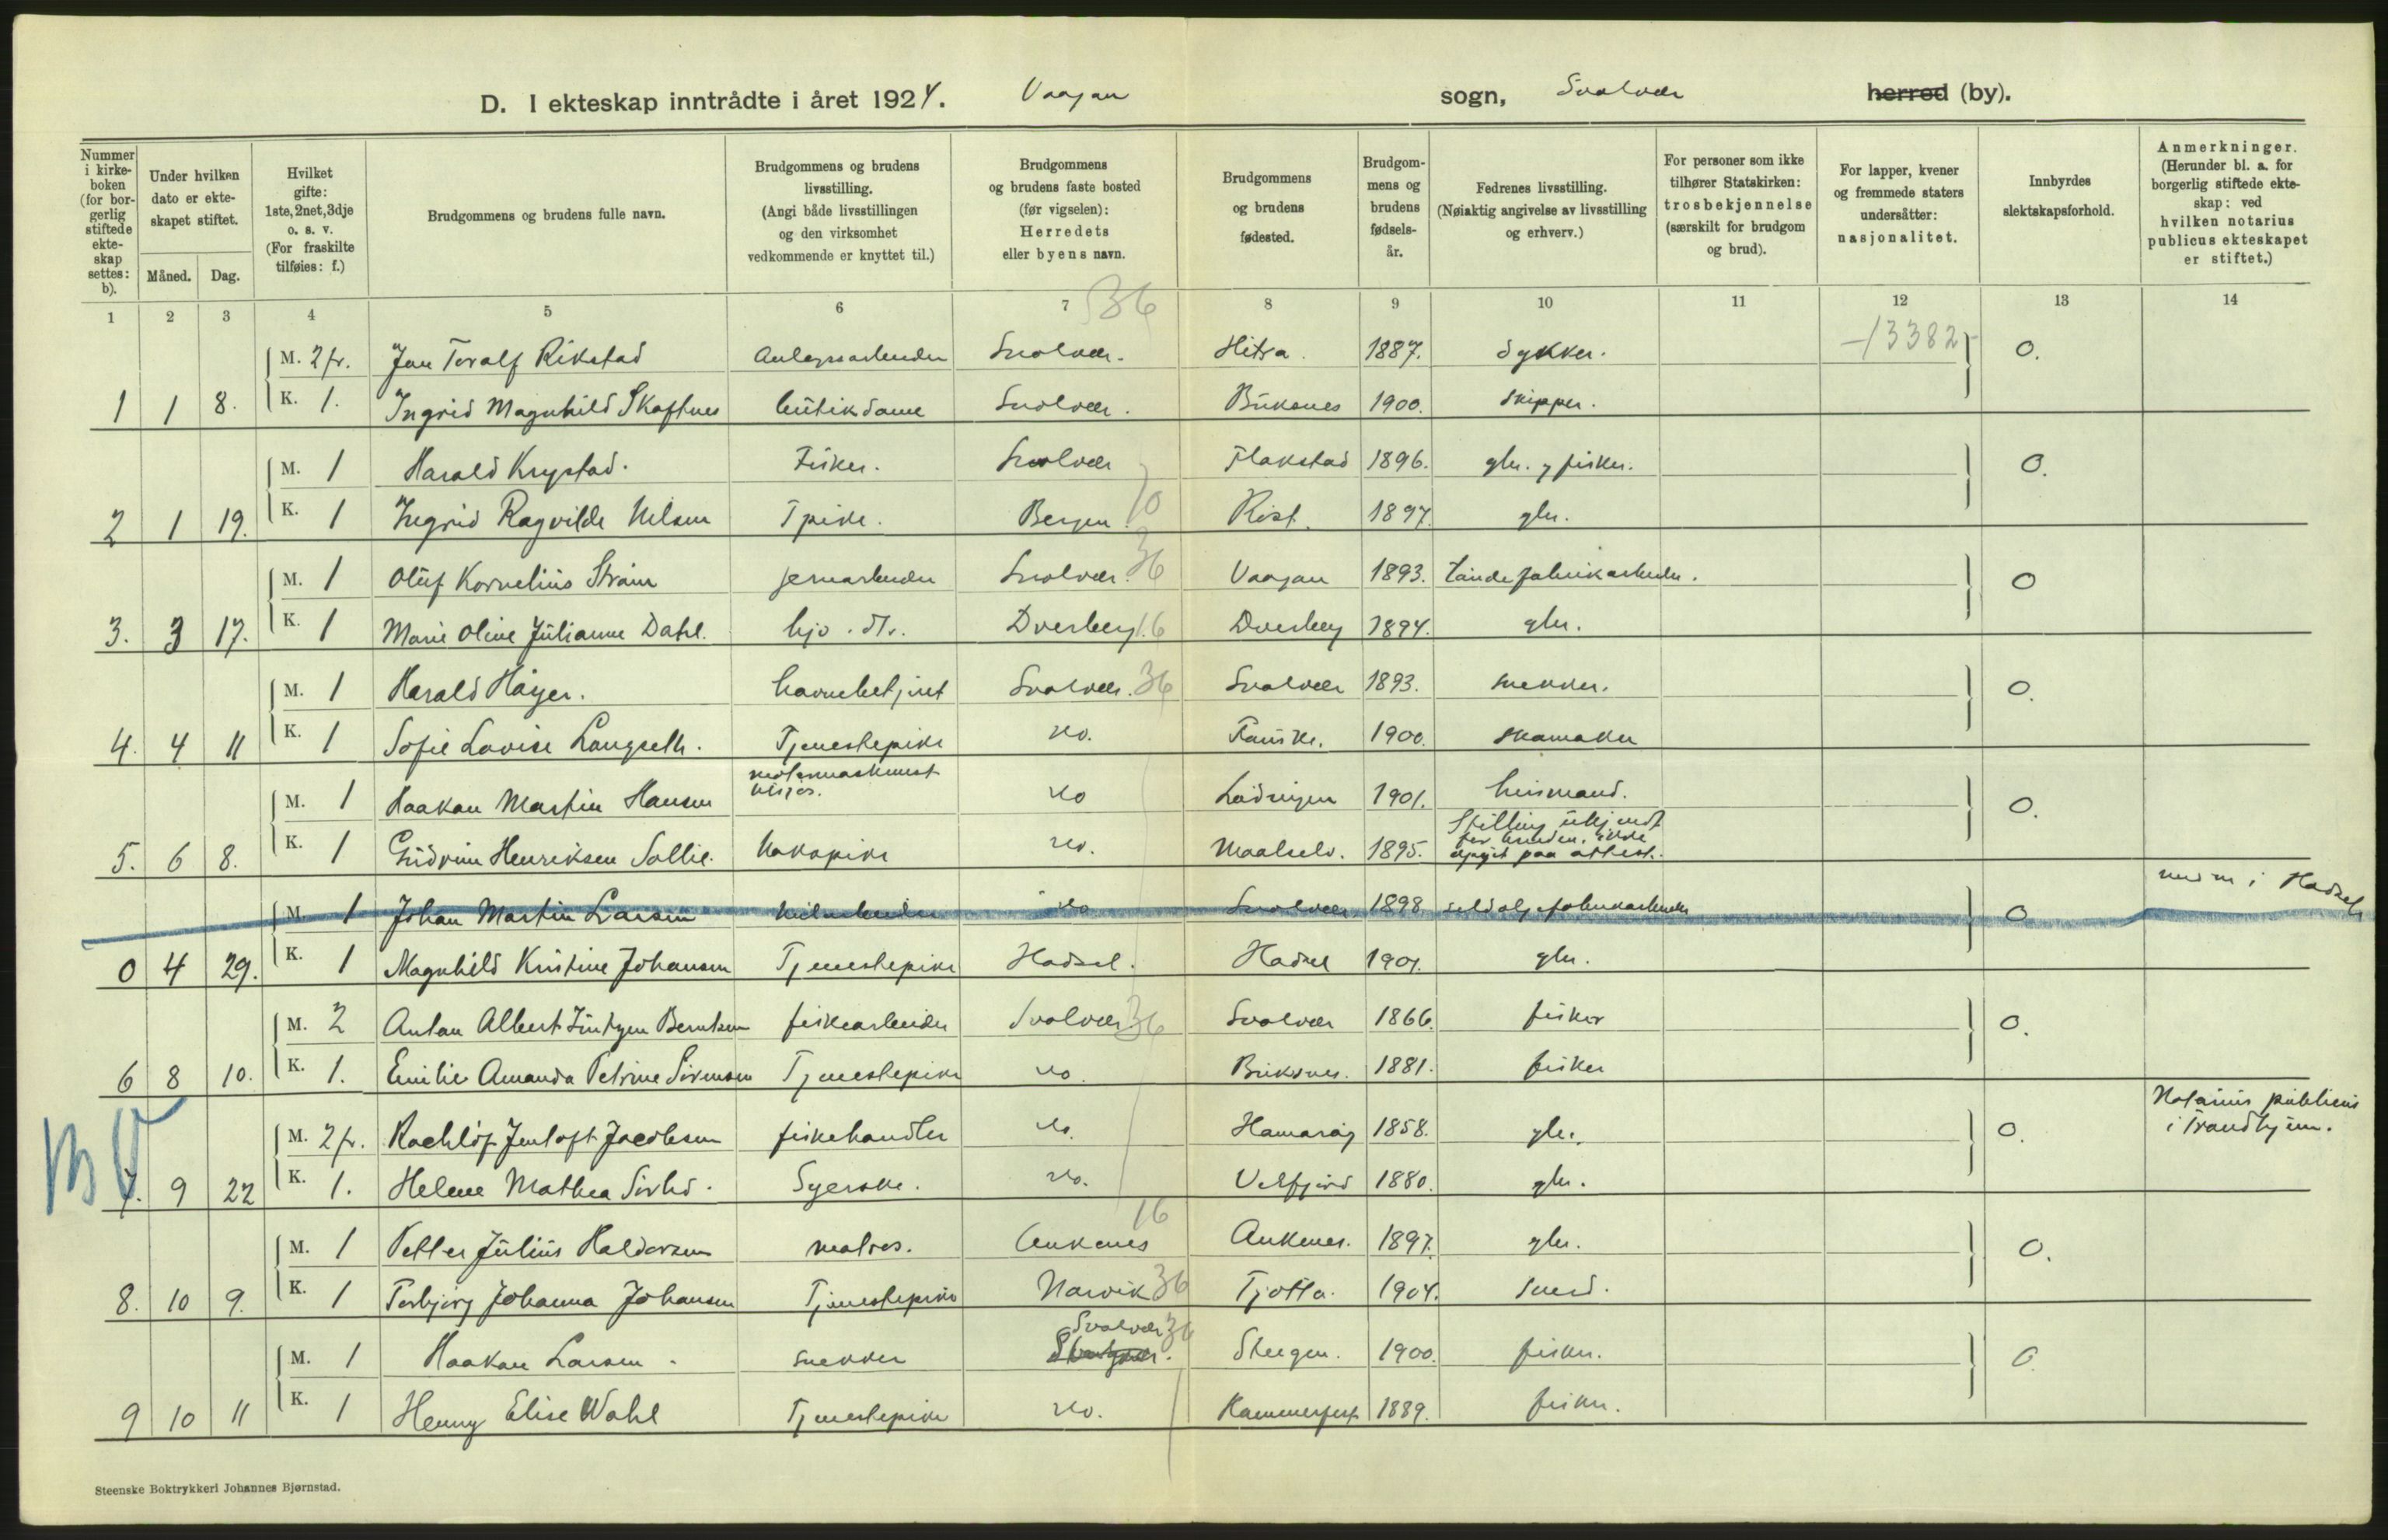 D. I ekteskap inntrådte i året 1924. Vaagan sogn, Svolvær herred (by).
Nummer i kirkeboken (for borgerlig stiftede ekteskap settes: b).
Under hvilken dato er ekteskapet stiftet.
Måned. Dag.
Hvilket gifte: 1ste, 2net, 3dje o. s. v. (For fraskilte tilføies: f.)
Brudgommens og brudens fulle navn.
Brudgommens og brudens livsstilling. (Angi både livsstillingen og den virksomhet vedkommende er knyttet til.)
Brudgommens og brudens faste bosted (før vigselen): Herredets eller byens navn.
Brudgommens og brudens fødested.
Brudgommens og brudens fødselsår.
Fedrenes livsstilling. (Nøiaktig angivelse av livsstilling og erhverv.)
For personer som ikke tilhører Statskirken: trosbekjennelse (særskilt for brudgom og brud).
For lapper, kvener og fremmede staters undersåtter: nasjonalitet.
Innbyrdes slektskapsforhold.
Anmerkninger. (Herunder bl. a. for borgerlig stiftede ekteskap: ved hvilken notarius publicus ekteskapet er stiftet.)
1 2 3 4 5 6 7 8 9 10 11 12 13 14
36
13382
M. 2 fr. Jan Toralf Rikstad Anlegsarbeider Svolvær. Hitra. 1887. dykker. 0.
1 1 8. K. 1. Ingrid Magnhild Skaftnes butikdame Svolvær. Buksnes 1900. skipper.
M. 1 Harald Krystad. Fisker. Svolvær Flakstad 1896. gbr. og fisker. 0.
2 1 19. K. 1 Ingrid Ragvilde Nilsen Tpike. Bergen. 70 Røst. 1897. gbr.
M. 1 Oluf Kornelius Strøm jernarbeider Svolvær. 36 Vaagan 1893. tøndefabrikarbeider. 0
3. 3 17. K. 1 Marie Oline Julianne Dahl. hjv. Dverberg 16 Dverberg 1894. gbr.
M. 1 Harald Høyer. havnebetjent Svolvær. 36 Svolvær 1893. snekker. 0.
4. 4 11 K. 1 Sofie Lovise Langseth. Tjenestepike do. Fauske. 1900. skomaker
M. 1 Haakon Martin Hansen motormaskinist do Lødingen 1901. husmand. 0.
5. 6 8. K. 1 Gudrun Henriksen Sollie. kokepike do. Maalselv. 1895. Stilling ukjendt for bruden, ikke opgit paa attest.
M. 1 Johan Martin Larsen do Svolvær 1898. sildoljefabrikarbeider 0 i Hadsel
0 4 29. K. 1 Magnhild Kristine Johansen Tjenestepike Hadsel. Hadsel 1901. gbr.
M. 2 Anton Albert Berntsen fiskearbeider Svolvær 36 Svolvær 1866. fisker 0.
6 8 10. K. 1. Emilie Amanda Petrine Sørensen Tjenestepike do. Buksnes. 1881. fisker
M. 2 fr. Jentoft Jacobsen fiskehandler do. Hamarøy 1858. gbr. 0. Notarius publicus i Trondhjem.
7. 9 22 K. 1. Helene Mathea Syerske. do. Velfjord 1880. gbr.
M. 1 Petter Julius Haldorsen matros. Ankenes 16 Ankenes. 1897. gbr. 0.
8. 10 9. K. 1 Torbjørg Johanna Johansen Tjenestepike Narvik 36 Tjøtta. 1904. smed.
M. 1 Haakon Larsen. snekker Svolvær 36 Steigen. 1900. fisker. 0
9 10 11 K. 1 Henny Elise Wahl Tjenestepike do. Hammerfest 1889. fisker.
Steenske Boktrykkeri Johannes Bjørnstad.